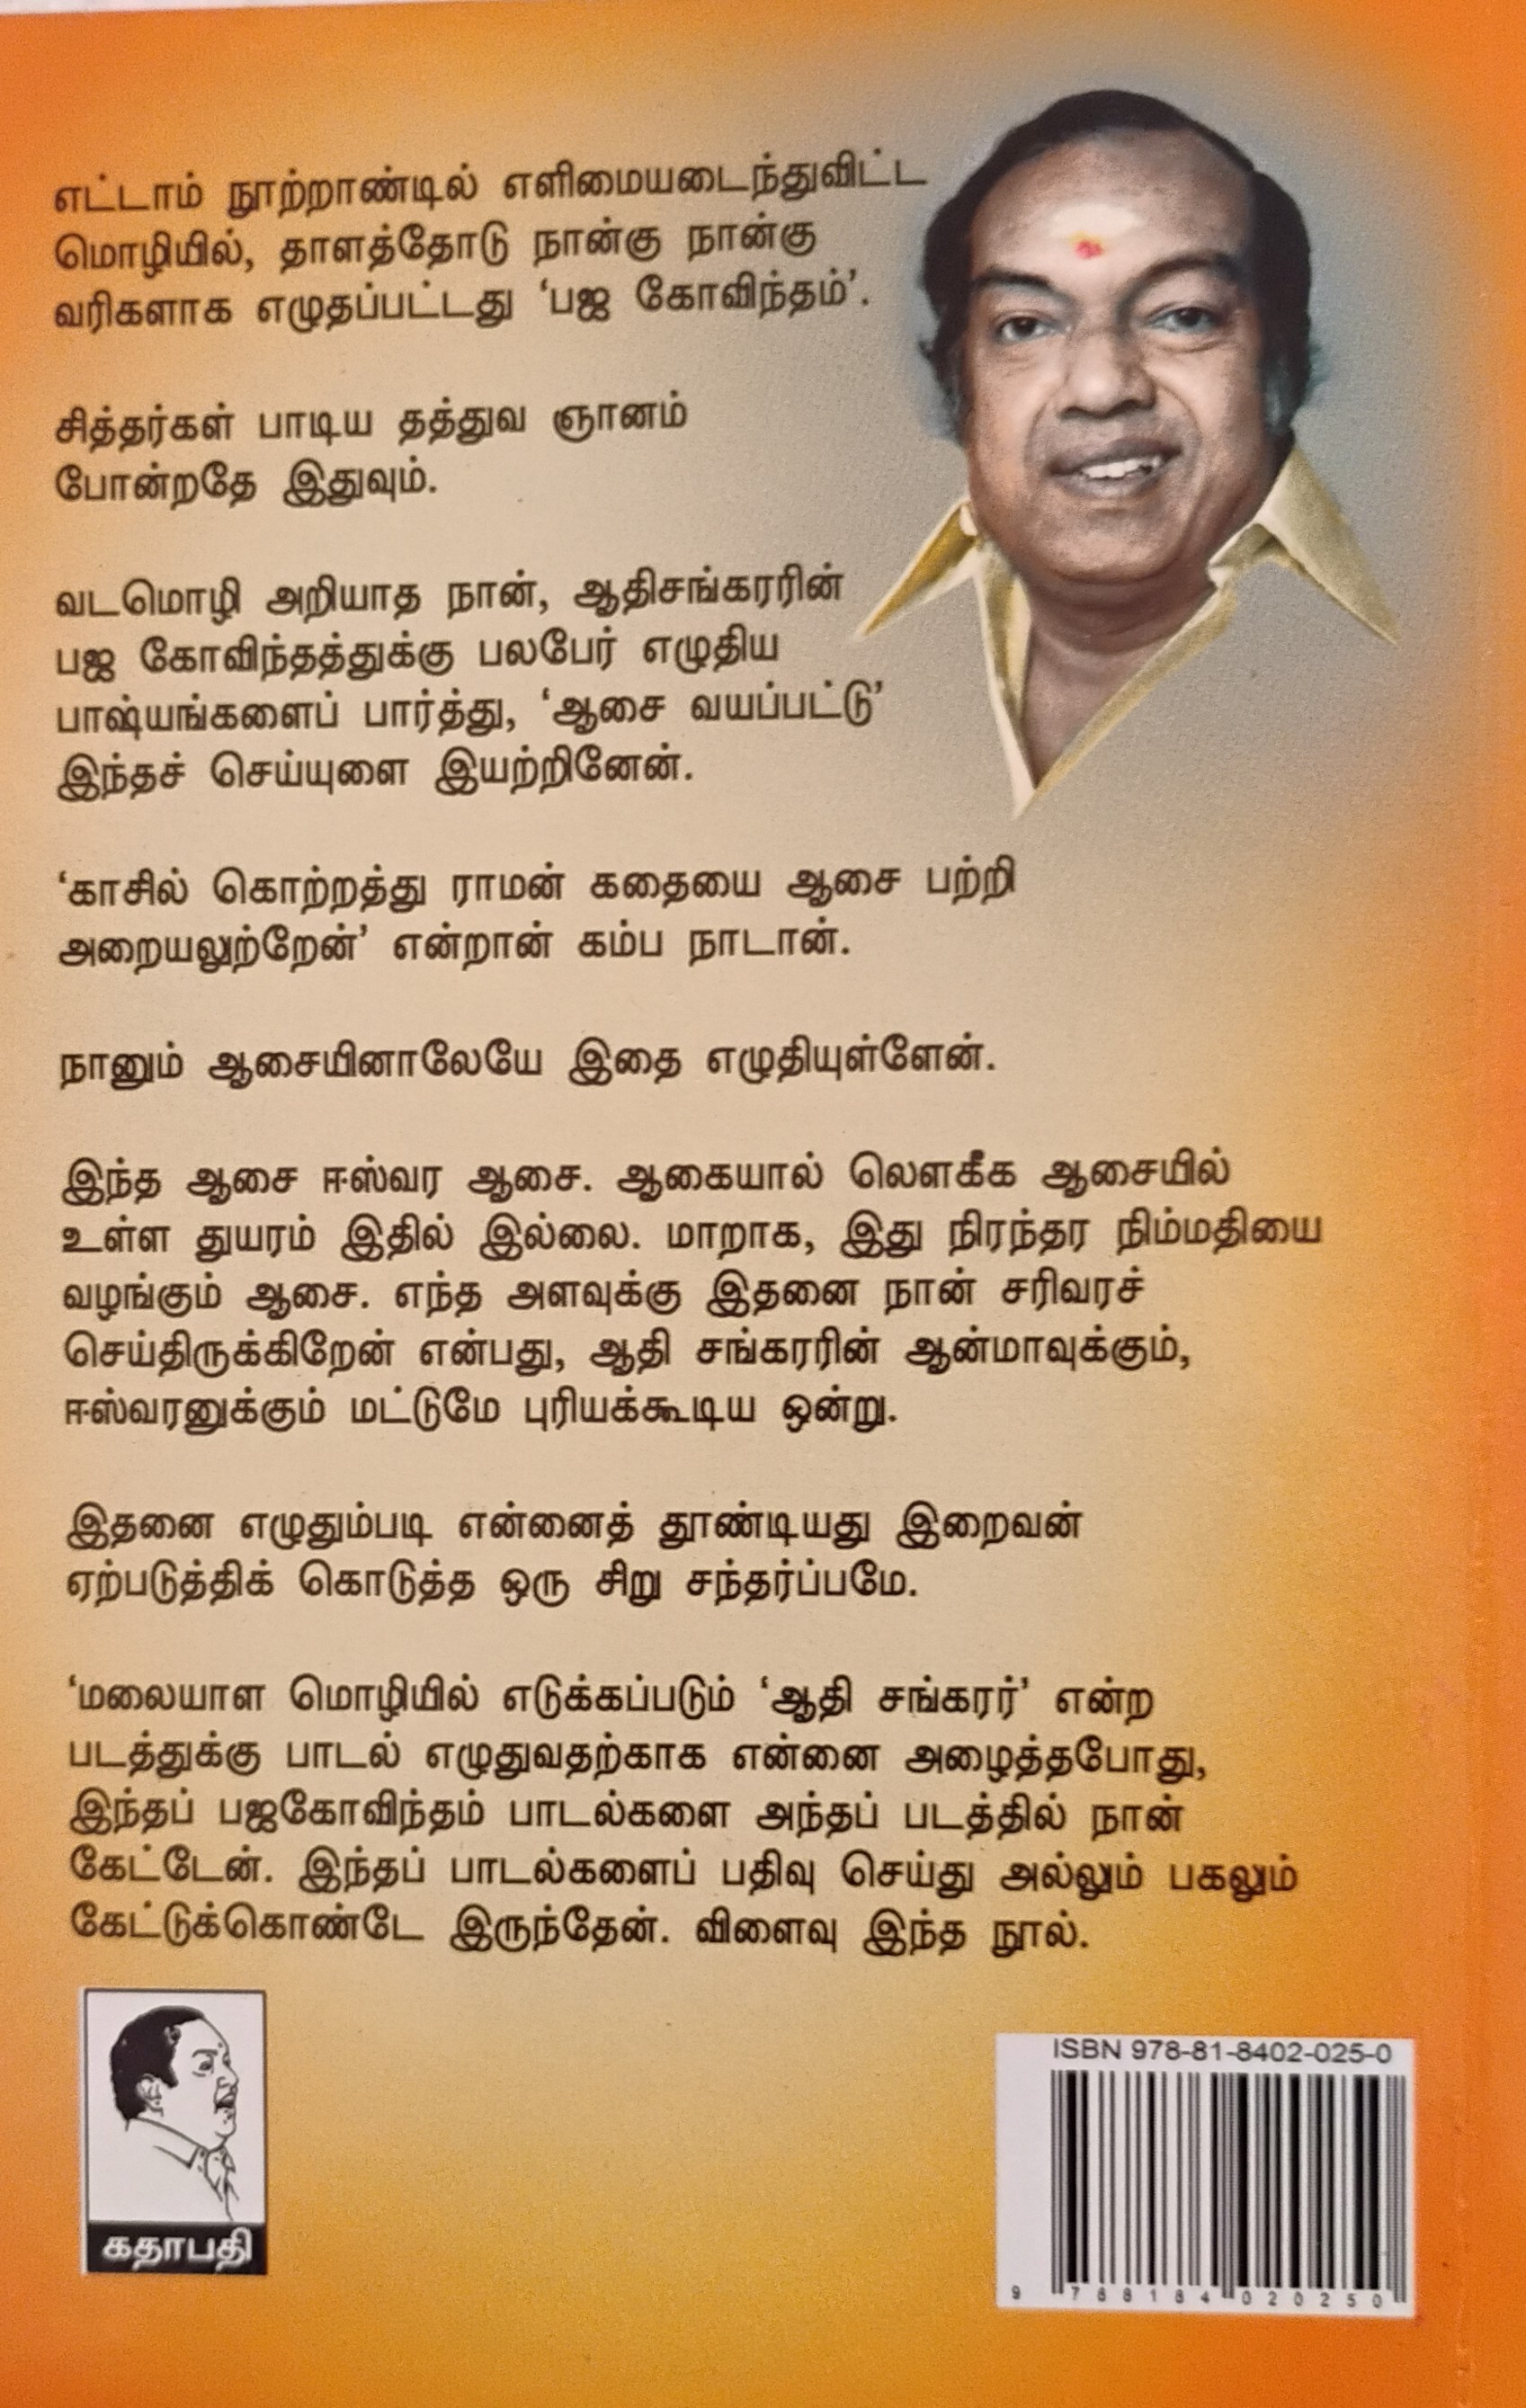 எட்டாம் நூற்றாண்டில் எளிமையடைந்துவிட்ட
மொழியில், தாளத்தோடு நான்கு நான்கு
வரிகளாக எழுதப்பட்டது ‘பஜ கோவிந்தம்’.
சித்தர்கள் பாடிய தத்துவ ஞானம்
போன்றதே இதுவும்.
வடமொழி அறியாத நான், ஆதிசங்கரரின்
பஜ கோவிந்தத்துக்கு பலபேர் எழுதிய
பாஷ்யங்களைப் பார்த்து, ‘ஆசை வயப்பட்டு’
இந்தச் செய்யுளை இயற்றினேன்.
‘காசில் கொற்றத்து ராமன் கதையை ஆசை பற்றி
அறையலுற்றேன்’ என்றான் கம்ப நாடான்.
நானும் ஆசையினாலேயே இதை எழுதியுள்ளேன்.
இந்த ஆசை ஈஸ்வர ஆசை. ஆகையால் லௌகீக ஆசையில்
உள்ள துயரம் இதில் இல்லை. மாறாக, இது நிரந்தர நிம்மதியை
வழங்கும் ஆசை. எந்த அளவுக்கு இதனை நான் சரிவரச்
செய்திருக்கிறேன் என்பது, ஆதி சங்கரரின் ஆன்மாவுக்கும்,
ஈஸ்வரனுக்கும் மட்டுமே புரியக்கூடிய ஒன்று.
இதனை எழுதும்படி என்னைத் தூண்டியது இறைவன்
ஏற்படுத்திக் கொடுத்த ஒரு சிறு சந்தர்ப்பமே.
‘மலையாள மொழியில் எடுக்கப்படும் ‘ஆதி சங்கரர்’ என்ற
படத்துக்கு பாடல் எழுதுவதற்காக என்னை அழைத்தபோது,
இந்தப் பஜகோவிந்தம் பாடல்களை அந்தப் படத்தில் நான்
கேட்டேன். இந்தப் பாடல்களைப் பதிவு செய்து அல்லும் பகலும்
கேட்டுக்கொண்டே இருந்தேன். விளைவு இந்த நூல்.
கதாபதி
ISBN 978-81-8402-025-0
9 788184 020250